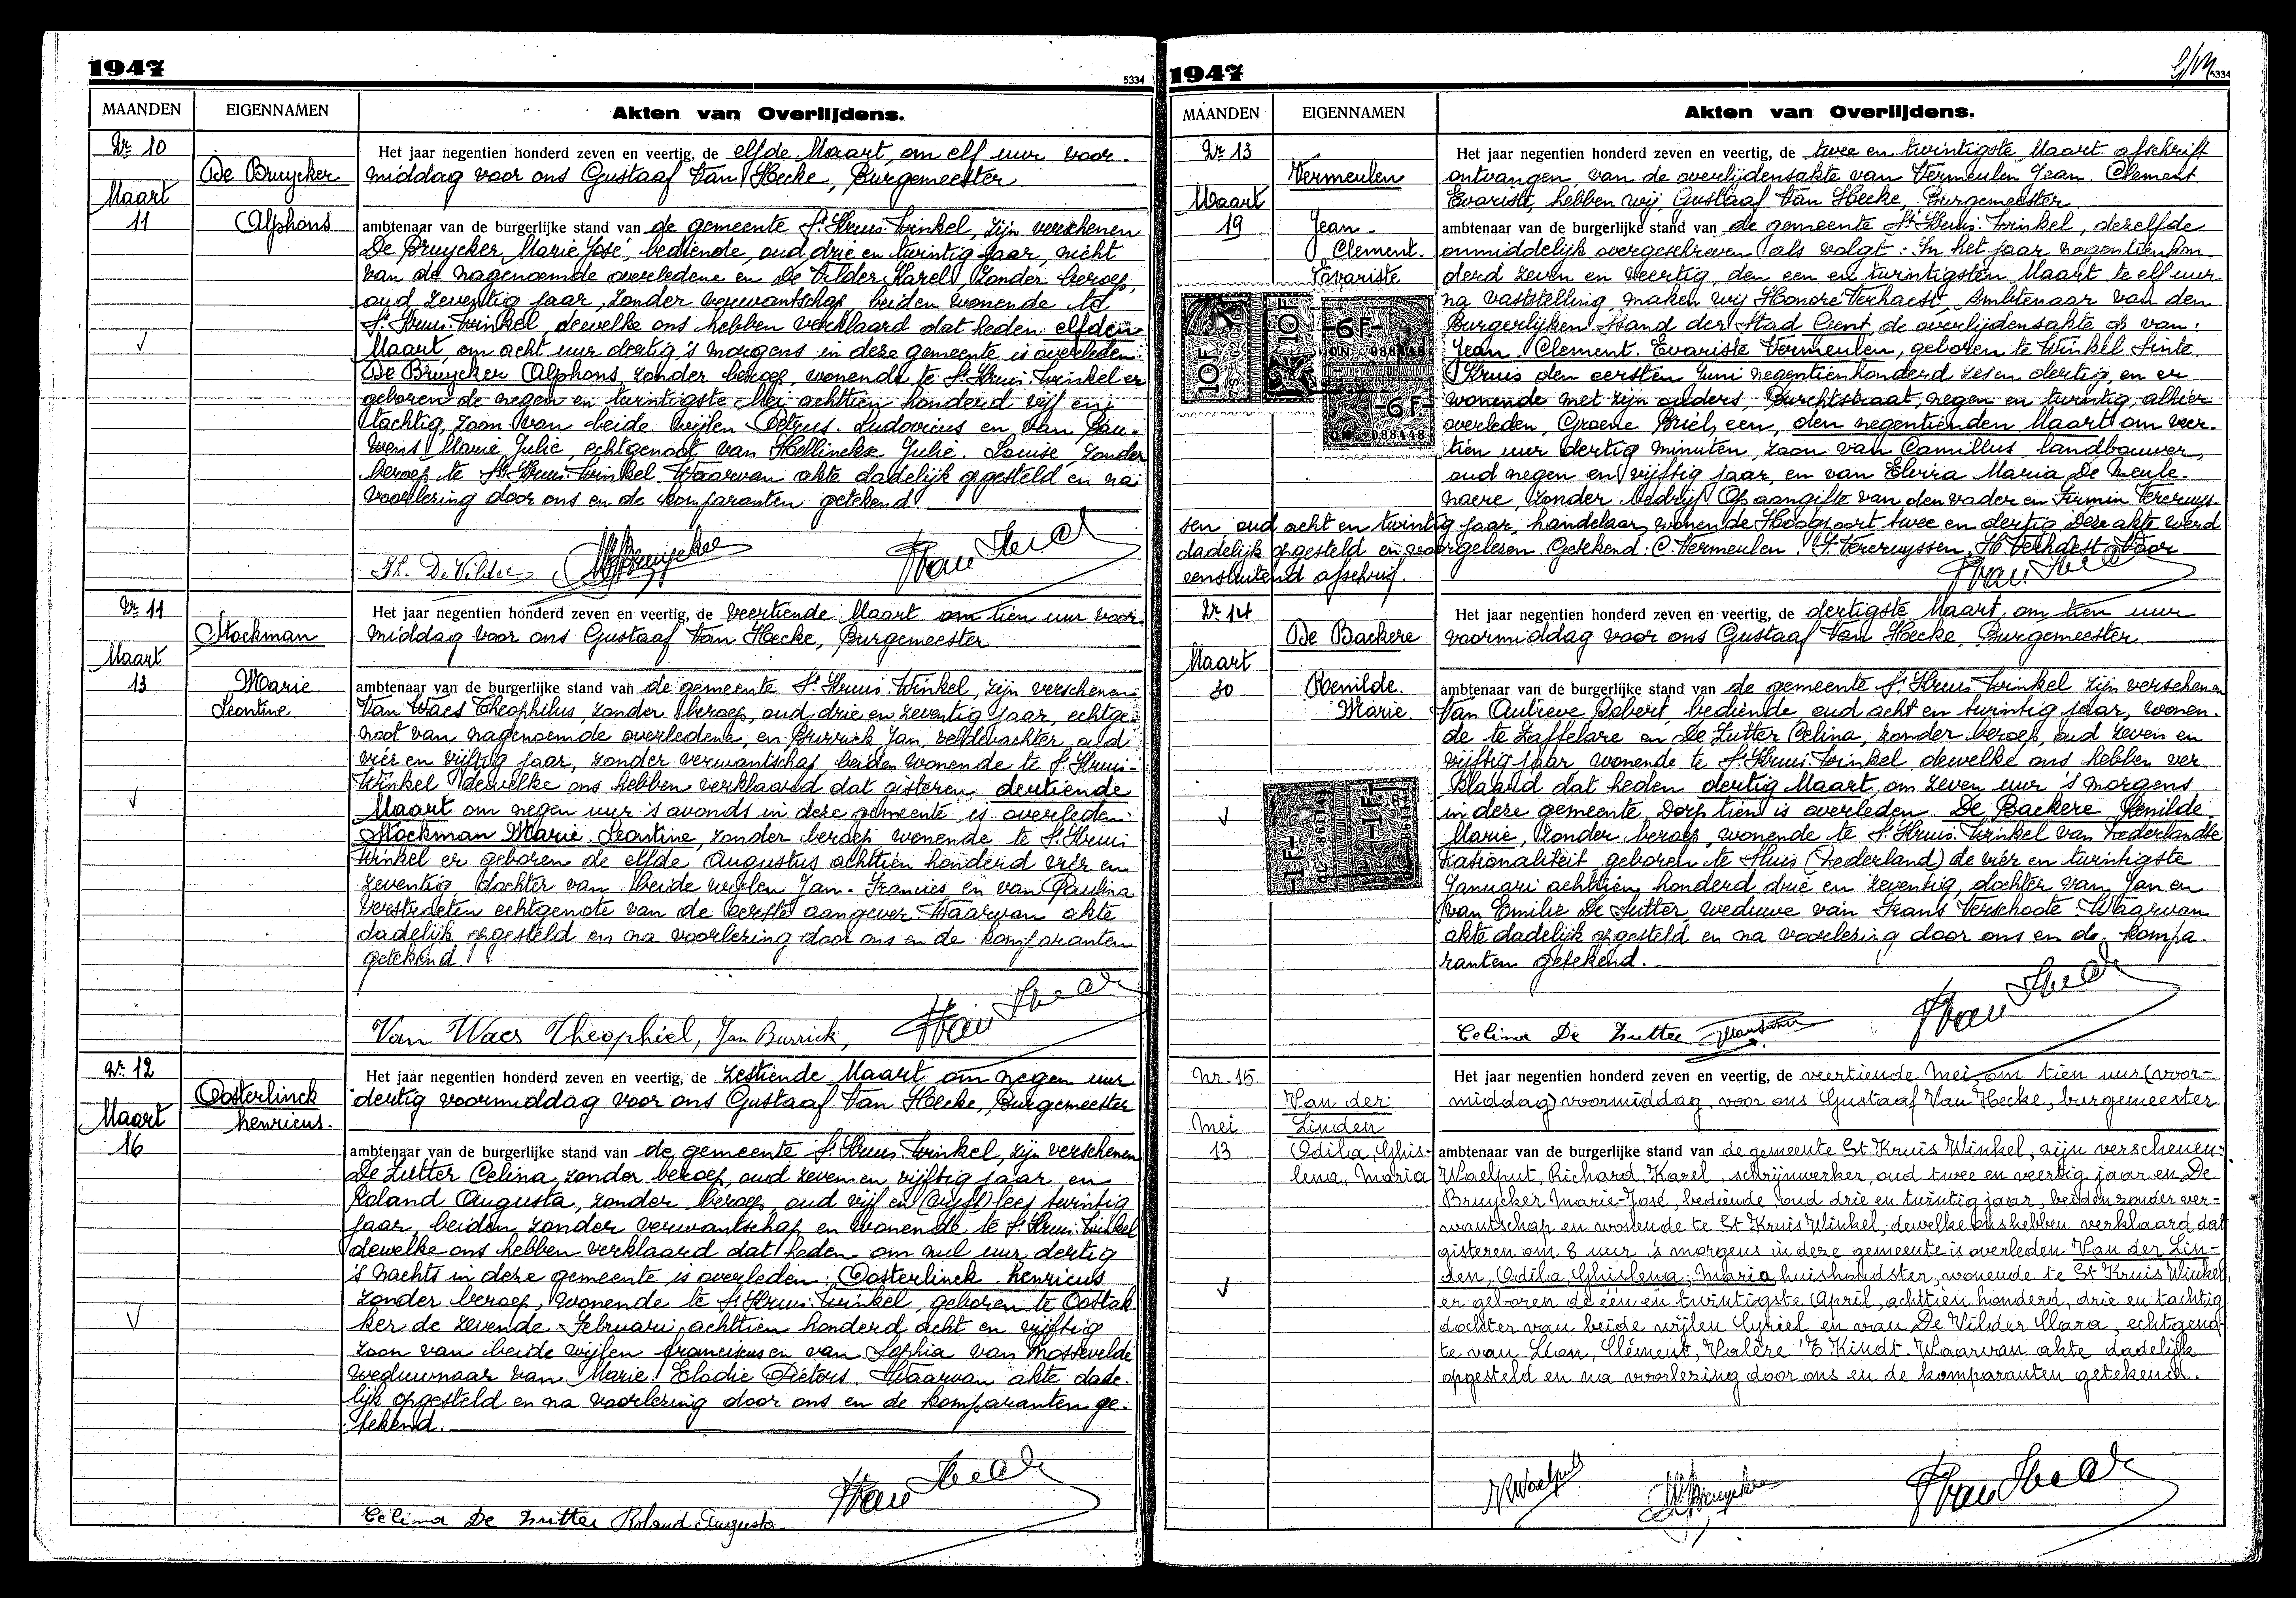 1947
5334
MAANDEN
EIGENNAMEN
Akten van Overlijdens.
Nr. 10
De Bruycker
Maart
11
Alphons
Het jaar negentien honderd zeven en veertig, de elfde Maart, om elf uur voor-
middag voor ons Gustaaf Van Hecke, Burgemeester
ambtenaar van de burgerlijke stand van de gemeente St. Kruis-Winkel, zijn verschenen
De Bruycker, Marie José, bediende, oud drie en twintig jaar, nicht
van de nagenoemde overledene en De Vilder Karel, zonder beroep,
oud zeventig jaar, zonder verwantschap, beiden wonende te
St. Kruis-Winkel, dewelke ons hebben verklaard dat heden elfden
Maart, om acht uur dertig 's morgens in deze gemeente is overleden:
De Bruycker Alphons zonder beroep, wonende te St. Kruis-Winkel er
geboren de negen en twintigste Mei achttien honderd vijf en
tachtig, zoon van beide wijlen Petrus-Ludovicus en van Pau-
wens Marie Julie, echtgenoot van Hellinckx Julie-Louise, zonder
beroep te St. Kruis-Winkel. Waarvan akte dadelijk opgesteld en na
voorlezing door ons en de komparanten getekend.
Th. De Vilder
Nr. 11
Stockman
Maart
13
Marie
Leontine
Het jaar negentien honderd zeven en veertig, de veertiende Maart om tien uur voor-
middag voor ons Gustaaf Van Hecke, Burgemeester
ambtenaar van de burgerlijke stand van de gemeente St. Kruis-Winkel, zijn verschenen
Van Waes Theophilus, zonder beroep, oud drie en zeventig jaar, echtge-
noot van nagenoemde overledene, en Burrick Jan, veldwachter, oud
vier en vijftig jaar, zonder verwantschap beiden wonende te St. Kruis-
Winkel dewelke ons hebben verklaard dat gisteren dertiende
Maart om negen uur 's avonds in deze gemeente is overleden:
Stockman Marie-Leontine, zonder beroep wonende te St. Kruis
Winkel er geboren de elfde Augustus achttien honderd vier en
zeventig, dochter van beide wijlen Jan-Francies en van Paulina
Verstraeten echtgenote van de eerste aangever. Waarvan akte
dadelijk opgesteld en na voorlezing door ons en de komparanten
getekend.
Van Waes Theophiel, Jan Burrick,
Nr. 12
Oosterlinck
Maart
henricus.
16
Het jaar negentien honderd zeven en veertig, de zestiende Maart om negen uur
dertig voormiddag voor ons Gustaaf Van Hecke, Burgemeester
ambtenaar van de burgerlijke stand van de gemeente St. Kruis-Winkel, zijn verschenen
De Zutter Celina, zonder beroep, oud zeven en vijftig jaar, en
Roland Augusta, zonder beroep, oud vijf en (vijft) lees twintig
jaar, beiden zonder verwantschap en wonende te St. Kruis-Winkel
dewelke ons hebben verklaard dat heden om nul uur dertig
's nachts in deze gemeente is overleden: Oosterlinck henricus
zonder beroep, wonende te St. Kruis-Winkel, geboren te Oostak-
ker de zevende Februari achttien honderd acht en vijftig
zoon van beide wijlen franciscus en van Sophia van Mossevelde
weduwnaar van Marie Elodie Pieters. Waarvan akte dade-
lijk opgesteld en na voorlezing door ons en de komparanten ge-
tekend.
Celina De Zutter Roland Augusta
1947
5334
MAANDEN
EIGENNAMEN
Akten van Overlijdens.
Nr. 13
Vermeulen
Maart
19
Jean-
Clement.
Evariste
10F
10F
-6F-
088448
-6F-
088448
Het jaar negentien honderd zeven en veertig, de twee en twintigste Maart afschrift
ontvangen van de overlijdensakte van Vermeulen Jean-Clement
Evarist, hebben wij Gustaaf Van Hecke, Burgemeester
ambtenaar van de burgerlijke stand van de gemeente St. Kruis-Winkel, dezelfde
onmiddelijk overgeschreven als volgt: In het jaar negentienhon-
derd zeven en veertig, den een en twintigsten Maart te elf uur
na vaststelling, maken wij Honoré Verhaest, Ambtenaar van den
Burgerlijken Stand der Stad Gent, de overlijdensakte op van:
Jean Clement Evariste Vermeulen, geboren te Winkel Sinte
Kruis den eersten Juni negentienhonderd zes en dertig, en er
wonende met zijn ouders, Burchtstraat, negen en twintig, alhier
overleden, Groene Briel, een, den negentienden Maart om veer-
tien uur dertig minuten, zoon van Camillus, landbouwer,
oud negen en vijftig jaar, en van Elvira Maria De Meule-
naere, zonder bedrijf. Op aangifte van den vader en Firmin Vereruys-
sen, oud acht en twintig jaar, handelaar, wonende Hoogpoort twee en dertig. Deze akte werd
dadelijk opgesteld en voorgelezen. Getekend: C. Vermeulen. F. Vereruyssen. H. Verhaest. Voor
eensluitend afschrift.
Nr. 14
De Backere
Maart
30
Renilde.
Marie.
-1F-
-1F-
Het jaar negentien honderd zeven en veertig, de dertigste Maart, om tien uur
voormiddag voor ons Gustaaf Van Hecke, Burgemeester
ambtenaar van de burgerlijke stand van de gemeente St. Kruis-Winkel zijn verschenen
Van Autreve Robert, bediende oud acht en twintig jaar, wonen-
de te Zaffelare en De Zutter Celina, zonder beroep, oud zeven en
vijftig jaar wonende te St. Kruis-Winkel dewelke ons hebben ver-
klaard dat heden dertig Maart, om zeven uur 's morgens
in deze gemeente Dorp tien is overleden De Backere Renilde
Marie, zonder beroep, wonende te St. Kruis-Winkel van nederlandse
nationaliteit, geboren te Sluis (Nederland) de vier en twintigste
Januari achttien honderd drie en zeventig, dochter van Jan en
van Emilie De Sutter, weduwe van Frans Verschoote. Waarvan
akte dadelijk opgesteld en na voorlezing door ons en de kompa-
ranten getekend.
Celina De Zutter
Nr. 15
Van der
Mei
Linden
13
Odila, Ghis-
lena, Maria
Het jaar negentien honderd zeven en veertig, de veertiende Mei, om tien uur (voor-
middag) voormiddag, voor ons Gustaaf Van Hecke, burgemeester
ambtenaar van de burgerlijke stand van de gemeente St Kruis Winkel, zijn verschenen:
Waelput, Richard, Karel, schrijnwerker, oud twee en veertig jaar en De
Bruycker Marie-José, bediende, oud drie en twintig jaar, beiden zonder ver-
wantschap en wonende te St Kruis Winkel, dewelke ons hebben verklaard dat
gisteren om 8 uur 's morgens in deze gemeente is overleden Van der Lin-
den, Odila, Ghislena, Maria, huishoudster, wonende te St Kruis Winkel,
er geboren de één en twintigste April, achttien honderd, drie en tachtig
dochter van beide wijlen Cyriel en van De Vilder Clara, echtgeno-
te van Léon, Clément, Valère 'T Kindt. Waarvan akte dadelijk
opgesteld en na voorlezing door ons en de komparanten getekend.